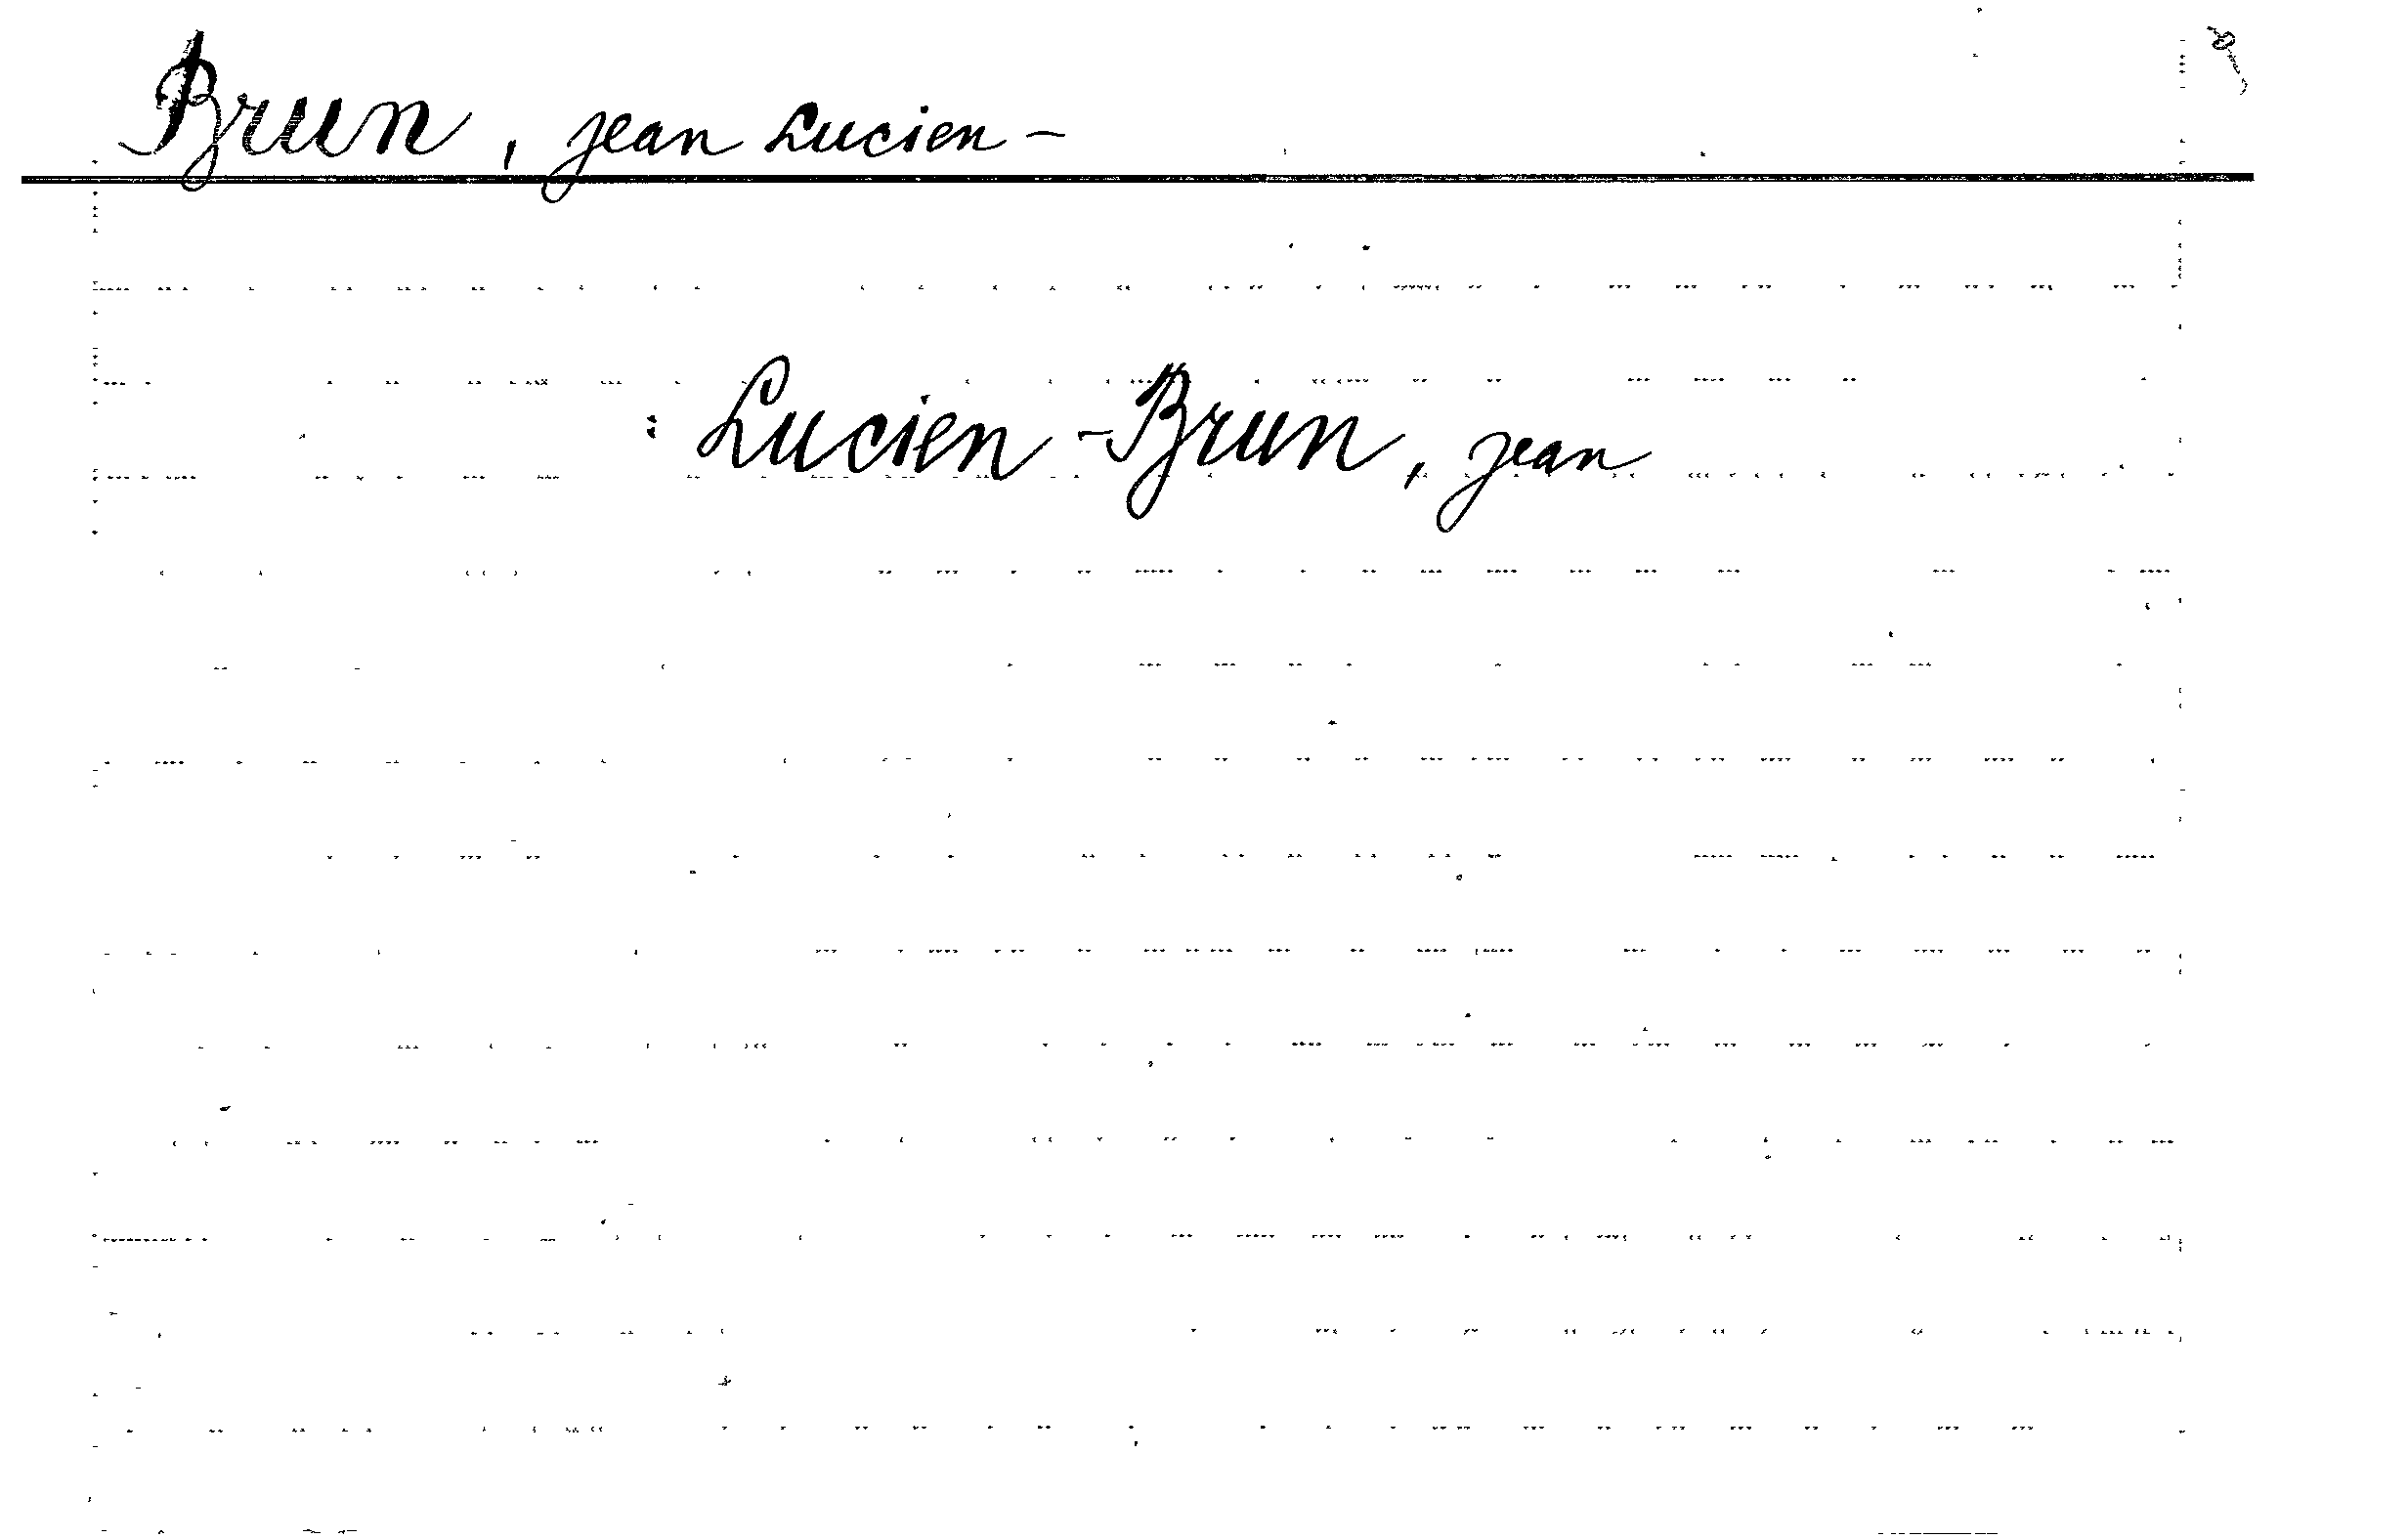 Brun, Jean Lucien -
: Lucien-Brun, Jean